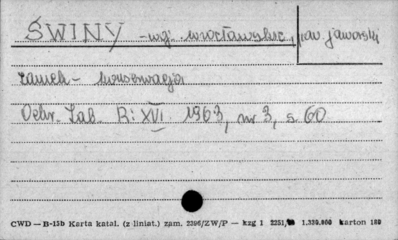 ŚWINY - woj. wrocławskie, pow. jaworski
zamek - konserwacja
Ochr. Zab. R: XVI 1963, nr 3, s. 60
CWD — B-13b Karta katal. (z liniat.) zam. 2396/ZW/P — kzg 1 2251, 1.330.000 karton 180